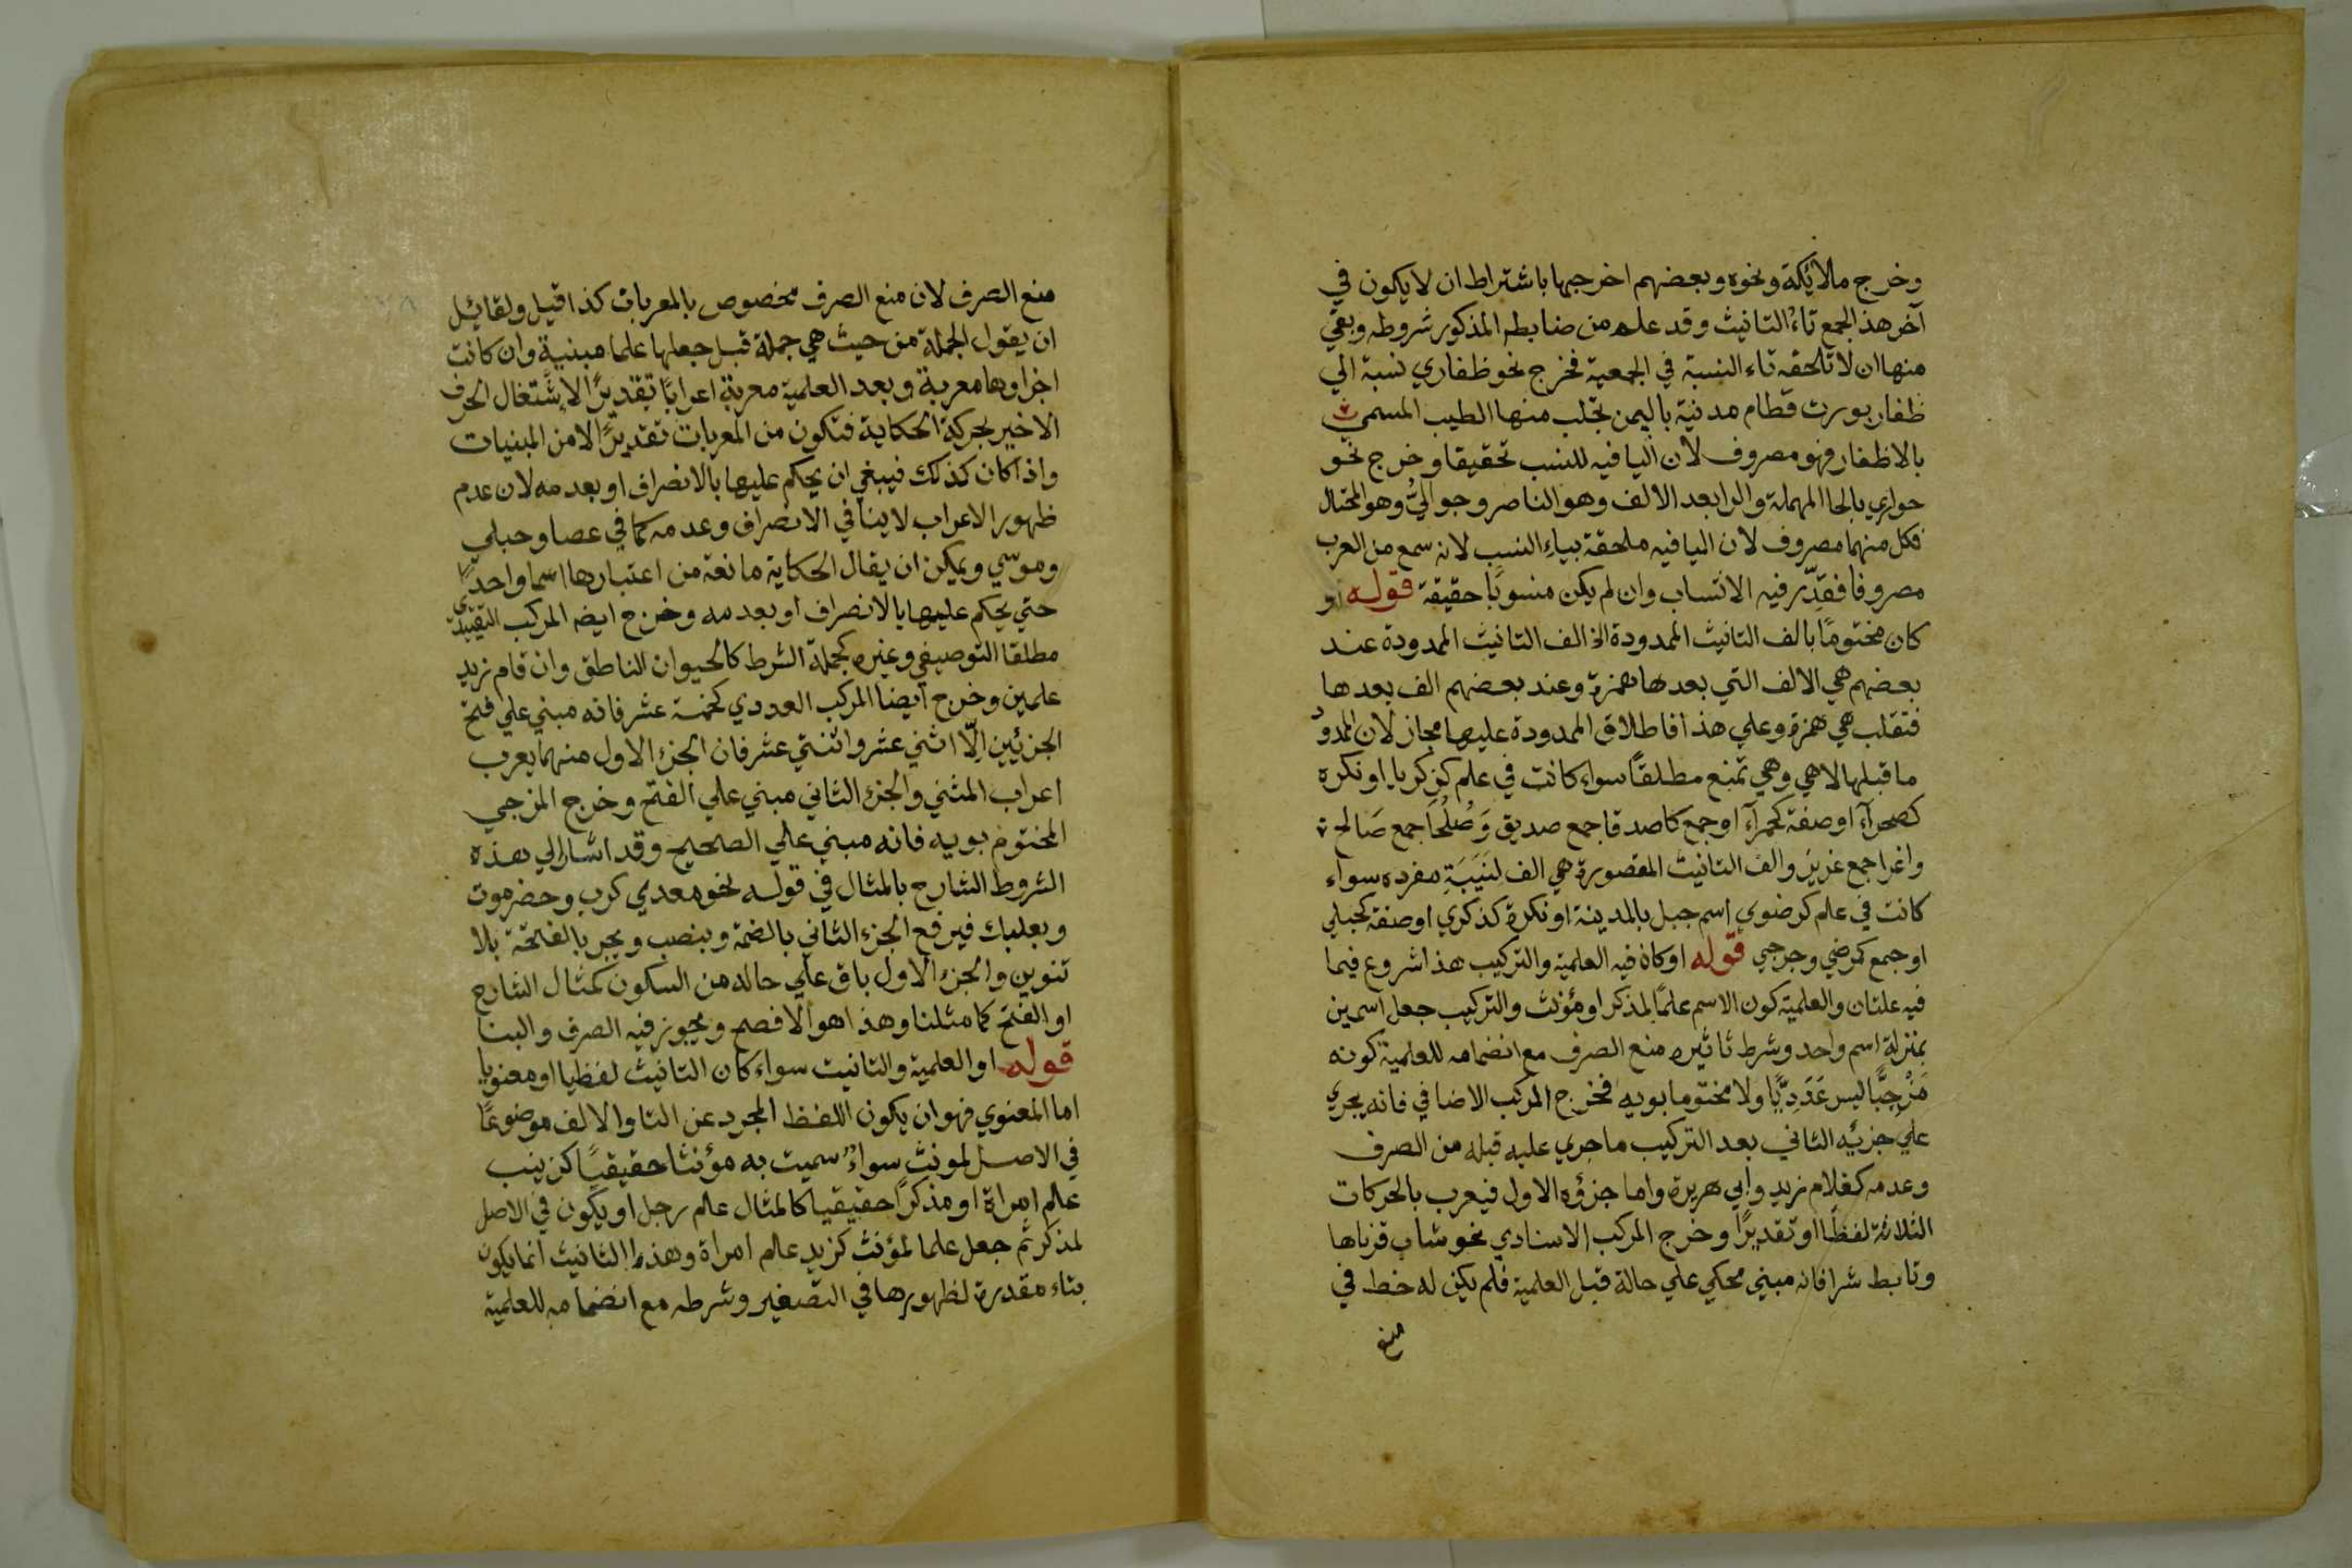 وخرج ملائكة ونحوه وبعضهم اخرجها باشتراط ان لا يكون في
آخر هذا الجمع تاء التانيث وقد علم من ضابطه المذكور شروطه وبقي
منها ان لا تلحقه ياء النسبة في الجمعية فخرج نحو ظفاري نسبة الي
ظفار بورت قطام مدنية باليمن تجلب منها الطيب المسمي
بالاظفار فهو مصروف لان اليا فيه للنسب تحقيقا وخرج نحو
حواري بالحا المهملة والرا بعد الالف وهو الناصر وحواليُّ وهو المحتال
فكل منهما مصروف لان اليا فيه ملحقة بياء النسب لانه سمع من العرب
مصروفا فقدّر فيه الانتساب وان لم يكن منسوبًا حقيقة قوله او
كان مختومًا بالف التانيث الممدودة الخ الف التانيث الممدودة عند
بعضهم هي الالف التي بعدها همزة وعند بعضهم الف بعدها
فتقلب هي همزة وعلي هذا فاطلاق الممدودة عليها مجاز لان الممدود
ما قبلها لا هي وهي تمنع مطلقًا سواء كانت في علم كزكريا او نكرة
كصحرآء او صفة كحمرآء او جمع كاصدقا جمع صديق وَصُلَحَا جمع صَالح
واغرا جمع غزيز والف التانيث المقصورة هي الف لَيِّنَةٍ مفرده سواء
كانت في علم كرضوي اسم جبل بالمدينة او نكرة كذكري او صفة كحبلي
او جمع كمرضي وجرحي قوله او كان فيه العلمية والتركيب هذا شروع فيما
فيه علتان والعلمية كون الاسم علمًا لمذكر او مؤنث والتركيب جعل اسمين
بمنزلة اسم واحد وشرط تاثيره منع الصرف مع انضمامه للعلمية كونه
مَزْجِيًّا ليس عَدَدِيًّا ولا مختوما بويه فخرج المركب الاضافي فانه يجري
علي جزئه الثاني بعد التركيب ما جري عليه قبله من الصرف
وعدمه كغلام زيد وابي هريرة واما جزؤه الاول فيعرب بالحركات
الثلاثة لفظًا او تقديرًا وخرج المركب الاسنادي نحو شاب قرناها
وتابط شرا فانه مبني محكي علي حالة قبل العلمية فلم يكن له خط في
منع
منع الصرف لان منع الصرف مخصوص بالمعربات كذا قيل ولقائل
ان يقول الجملة من حيث هي جملة قبل جعلها علما مبنية وان كانت
اجزاوها معربة وبعد العلمية معربة اعرابًا تقديرًا لاشتغال الحرف
الاخير بحركة الحكاية فتكون من المعربات تقديرًا لا من المبنيات
واذا كان كذلك فينبغي ان يحكم عليها بالانصراف او بعدمه لان عدم
ظهور الاعراب لا ينافي الانصراف وعدمه كما في عصا وحبلي
وموسي ويمكن ان يقال الحكاية مانعة من اعتبارها اسما واحدًا
حتي يحكم عليها بالانصراف او بعدمه وخرج ايضه المركب التقييدي
مطلقا التوصيفي وغيره كجملة الشرط كالحيوان الناطق وان قام زيد
علمين وخرج ايضا المركب العددي كخمسة عشر فانه مبني علي فتح
الجزئين اِلّا اثني عشر واثنتي عشر فان الجزء الاول منهما يعرب
اعراب المثني والجزء الثاني مبني علي الفتح وخرج المزجي
المختوم بويه فانه مبني علي الصحيح وقد اشار الي هذه
الشروط الشارح بالمثال في قوله نحو معدي كرب وحضرموت
وبعلبك فيرفع الجزء الثاني بالضمة وينصب ويجر بالفتحة بلا
تنوين والجزء الاول باق علي حاله من السكون كمثال الشارح
او الفتح كما مثلنا وهذا هو الافصح ويجوز فيه الصرف والبنا
قوله او العلمية والتانيت سواء كان التانيث لفظيا او معنويا
اما المعنوي فهو ان يكون اللفظ المجرد عن التا والالف موضوعًا
في الاصل لمونث سواءٌ سميت به مؤنثا حقيقيًا كزينب
علم امراة او مذكرًا حقيقيا كالمثال علم رجل او يكون في الاصل
لمذكر ثم جعل علما لمؤنث كزيد علم امراة وهذا التانيث انما يكون
بتاء مقدرة لظهورها في التصغير وشرطه مع انضمامه للعلمية